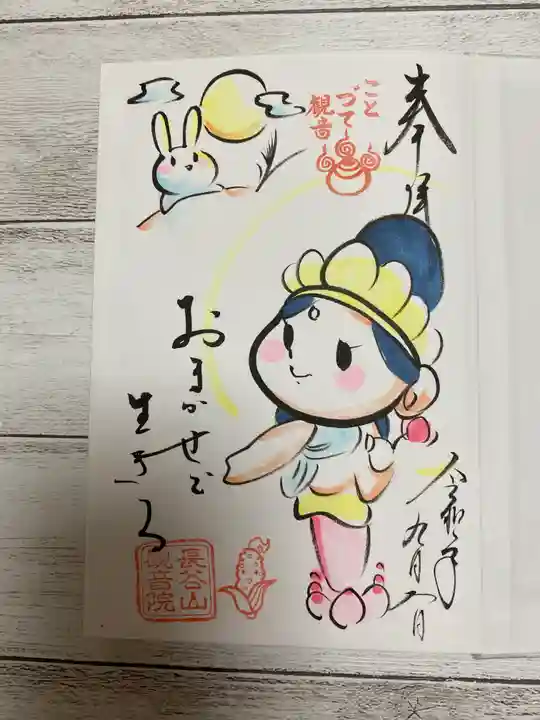 奉拝
こと
づて
観音
おまかせで
生きる
長谷山
観音院
九月八日